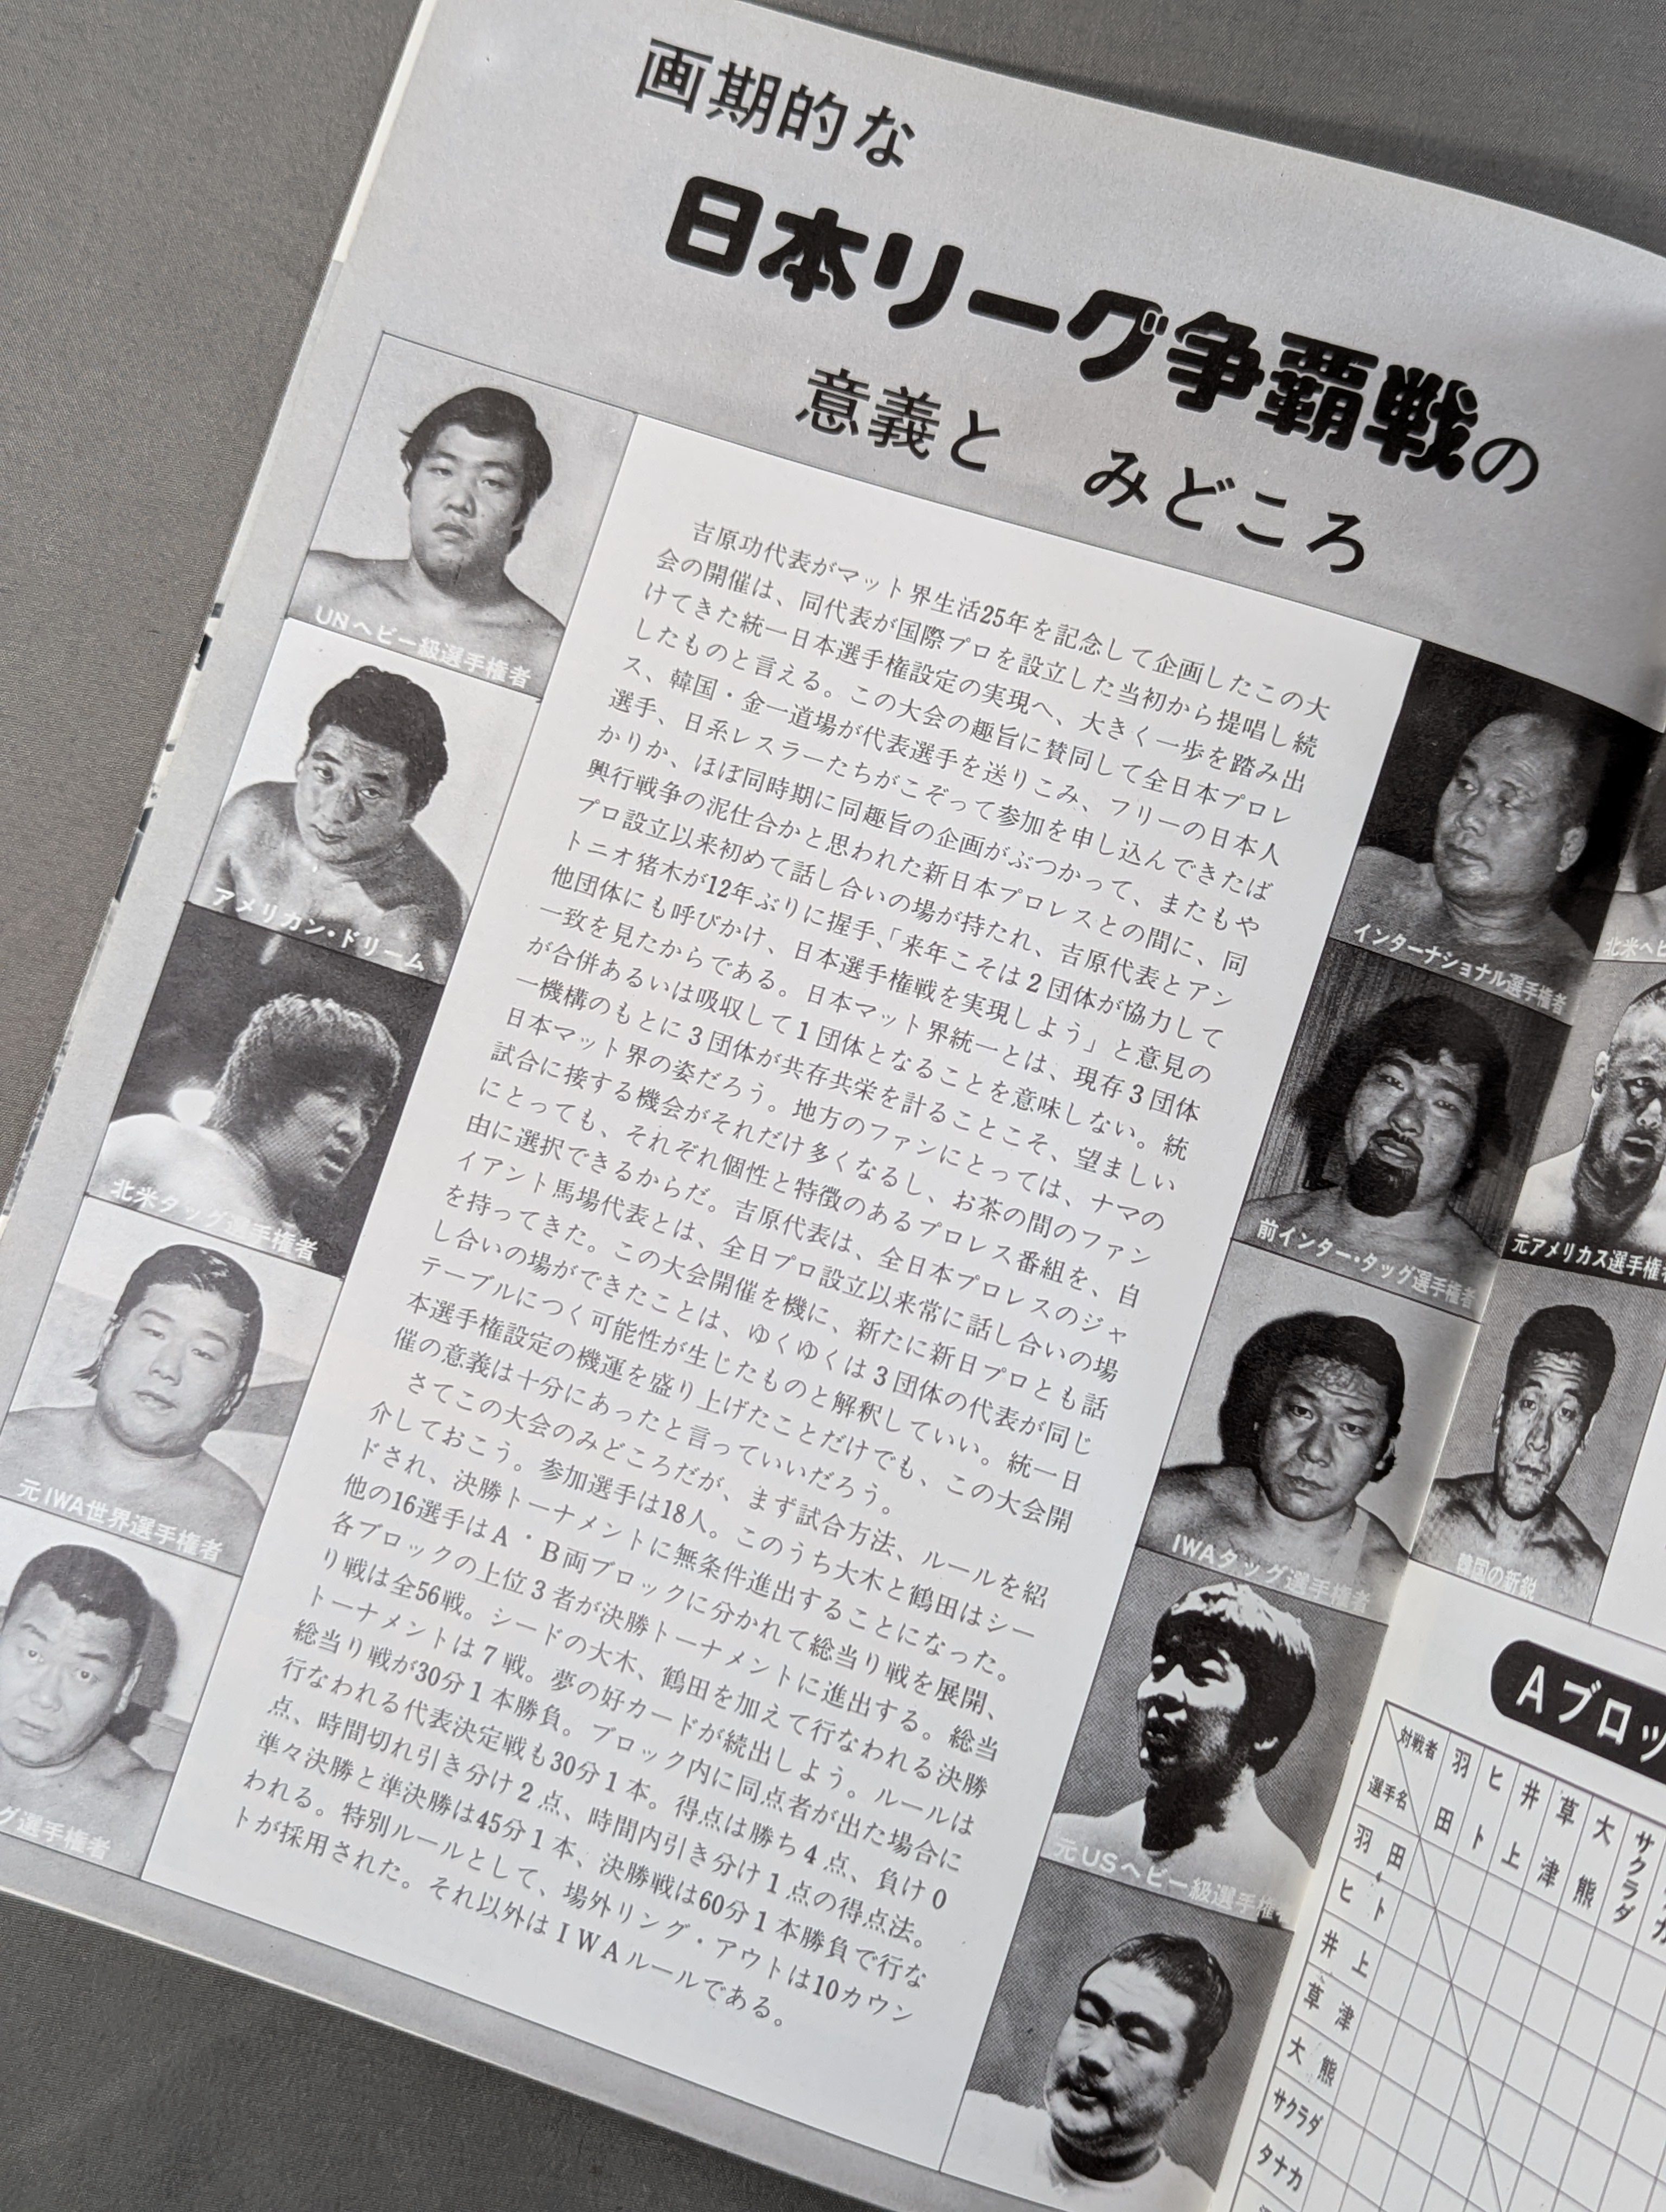 画期的な
日本リーグ争覇戦の
意義と みどころ
吉原功代表がマット界生活25年を記念して企画したこの大
会の開催は、同代表が国際プロを設立した当初から提唱し続
けてきた統一日本選手権設定の実現へ、大きく一歩を踏み出
したものと言える。この大会の趣旨に賛同して全日本プロレ
ス、韓国・金一道場が代表選手を送りこみ、フリーの日本人
選手、日系レスラーたちがこぞって参加を申し込んできたば
かりか、ほぼ同時期に同趣旨の企画がぶつかって、またもや
興行戦争の泥仕合かと思われた新日本プロレスとの間に、同
プロ設立以来初めて話し合いの場が持たれ、吉原代表とアン
トニオ猪木が12年ぶりに握手、「来年こそは2団体が協力して
他団体にも呼びかけ、日本選手権戦を実現しよう」と意見の
一致を見たからである。日本マット界統一とは、現存3団体
が合併あるいは吸収して1団体となることを意味しない。統
一機構のもとに3団体が共存共栄を計ることこそ、望ましい
日本マット界の姿だろう。地方のファンにとっては、ナマの
試合に接する機会がそれだけ多くなるし、お茶の間のファン
にとっても、それぞれ個性と特徴のあるプロレス番組を、自
由に選択できるからだ。吉原代表は、全日本プロレスのジャ
イアント馬場代表とは、全日プロ設立以来常に話し合いの場
を持ってきた。この大会開催を機に、新たに新日プロとも話
し合いの場ができたことは、ゆくゆくは3団体の代表が同じ
テーブルにつく可能性が生じたものと解釈していい。統一日
本選手権設定の機運を盛り上げたことだけでも、この大会開
催の意義は十分にあったと言っていいだろう。
さてこの大会のみどころだが、まず試合方法、ルールを紹
介しておこう。参加選手は18人。このうち大木と鶴田はシー
ドされ、決勝トーナメントに無条件進出することになった。
他の16選手はA・B両ブロックに分かれて総当り戦を展開、
各ブロックの上位3者が決勝トーナメントに進出する。総当
り戦は全56戦。シードの大木、鶴田を加えて行なわれる決勝
トーナメントは7戦。夢の好カードが続出しよう。ルールは
総当り戦が30分1本勝負。ブロック内に同点者が出た場合に
行なわれる代表決定戦も30分1本。得点は勝ち4点、負け0
点、時間切れ引き分け2点、時間内引き分け1点の得点法。
準々決勝と準決勝は45分1本、決勝戦は60分1本勝負で行な
われる。特別ルールとして、場外リング・アウトは10カウン
トが採用された。それ以外はIWAルールである。
UNヘビー級選手権者
アメリカン・ドリーム
北米タッグ選手権者
元IWA世界選手権者
グ選手権者
インターナショナル選手権者
前インター・タッグ選手権者
IWAタッグ選手権者
元USヘビー級選手権
北米ヘビ
元アメリカス選手権
韓国の新鋭
Aブロッ
対戦者
選手名
羽田
ヒト
井上
草津
大熊
サクラダ
羽田
ヒト
井上
草津
大熊
サクラダ
タナカ